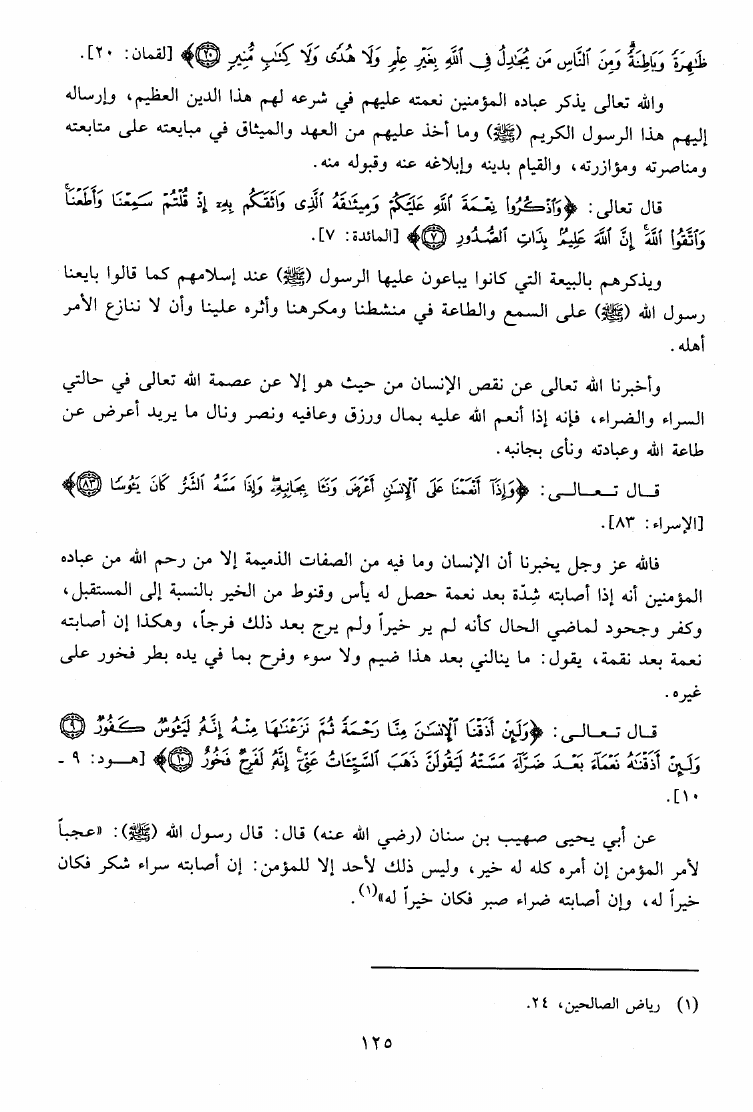 ظَٰهِرَةً وَبَاطِنَةً ۗ وَمِنَ ٱلنَّاسِ مَن يُجَٰدِلُ فِى ٱللَّهِ بِغَيْرِ عِلْمٍ وَلَا هُدًى وَلَا كِتَٰبٍ مُّنِيرٍ ﴿٢٠﴾ [لقمان: ٢٠].
والله تعالى يذكر عباده المؤمنين نعمته عليهم في شرعه لهم هذا الدين العظيم، وإرساله
إليهم هذا الرسول الكريم (ﷺ) وما أخذ عليهم من العهد والميثاق في مبايعته على متابعته
ومناصرته ومؤازرته، والقيام بدينه وإبلاغه عنه وقبوله منه.
قال تعالى: ﴿وَٱذْكُرُوا۟ نِعْمَةَ ٱللَّهِ عَلَيْكُمْ وَمِيثَٰقَهُ ٱلَّذِى وَاثَقَكُم بِهِۦٓ إِذْ قُلْتُمْ سَمِعْنَا وَأَطَعْنَا ۖ
وَٱتَّقُوا۟ ٱللَّهَ ۚ إِنَّ ٱللَّهَ عَلِيمٌۢ بِذَاتِ ٱلصُّدُورِ ﴿٧﴾﴾ [المائدة: ٧].
ويذكرهم بالبيعة التي كانوا يباعون عليها الرسول (ﷺ) عند إسلامهم كما قالوا بايعنا
رسول الله (ﷺ) على السمع والطاعة في منشطنا ومكرهنا وأثره علينا وأن لا ننازع الأمر
أهله.
وأخبرنا الله تعالى عن نقص الإنسان من حيث هو إلا عن عصمة الله تعالى في حالتي
السراء والضراء، فإنه إذا أنعم الله عليه بمال ورزق وعافيه ونصر ونال ما يريد أعرض عن
طاعة الله وعبادته ونأى بجانبه.
قـال تـعـالـى: ﴿وَإِذَآ أَنْعَمْنَا عَلَى ٱلْإِنسَٰنِ أَعْرَضَ وَنَـَٔا بِجَانِبِهِۦ ۖ وَإِذَا مَسَّهُ ٱلشَّرُّ كَانَ يَـُٔوسًا ﴿٨٣﴾﴾
[الإسراء: ٨٣].
فالله عز وجل يخبرنا أن الإنسان وما فيه من الصفات الذميمة إلا من رحم الله من عباده
المؤمنين أنه إذا أصابته شِدّة بعد نعمة حصل له يأس وقنوط من الخير بالنسبة إلى المستقبل،
وكفر وجحود لماضي الحال كأنه لم ير خيراً ولم يرج بعد ذلك فرجاً، وهكذا إن أصابته
نعمة بعد نقمة، يقول: ما ينالني بعد هذا ضيم ولا سوء وفرح بما في يده بطر فخور على
غيره.
قـال تـعـالـى: ﴿وَلَئِنْ أَذَقْنَا ٱلْإِنسَٰنَ مِنَّا رَحْمَةً ثُمَّ نَزَعْنَٰهَا مِنْهُ إِنَّهُۥ لَيَـُٔوسٌ كَفُورٌ ﴿٩﴾
وَلَئِنْ أَذَقْنَٰهُ نَعْمَآءَ بَعْدَ ضَرَّآءَ مَسَّتْهُ لَيَقُولَنَّ ذَهَبَ ٱلسَّيِّـَٔاتُ عَنِّىٓ ۚ إِنَّهُۥ لَفَرِحٌ فَخُورٌ ﴿١٠﴾﴾ [هـود: ٩ ـ
١٠].
عن أبي يحيى صهيب بن سنان (رضي الله عنه) قال: قال رسول الله (ﷺ): «عجباً
لأمر المؤمن إن أمره كله له خير، وليس ذلك لأحد إلا للمؤمن: إن أصابته سراء شكر فكان
خيراً له، وإن أصابته ضراء صبر فكان خيراً له»(١).
(١) رياض الصالحين، ٢٤.
١٢٥